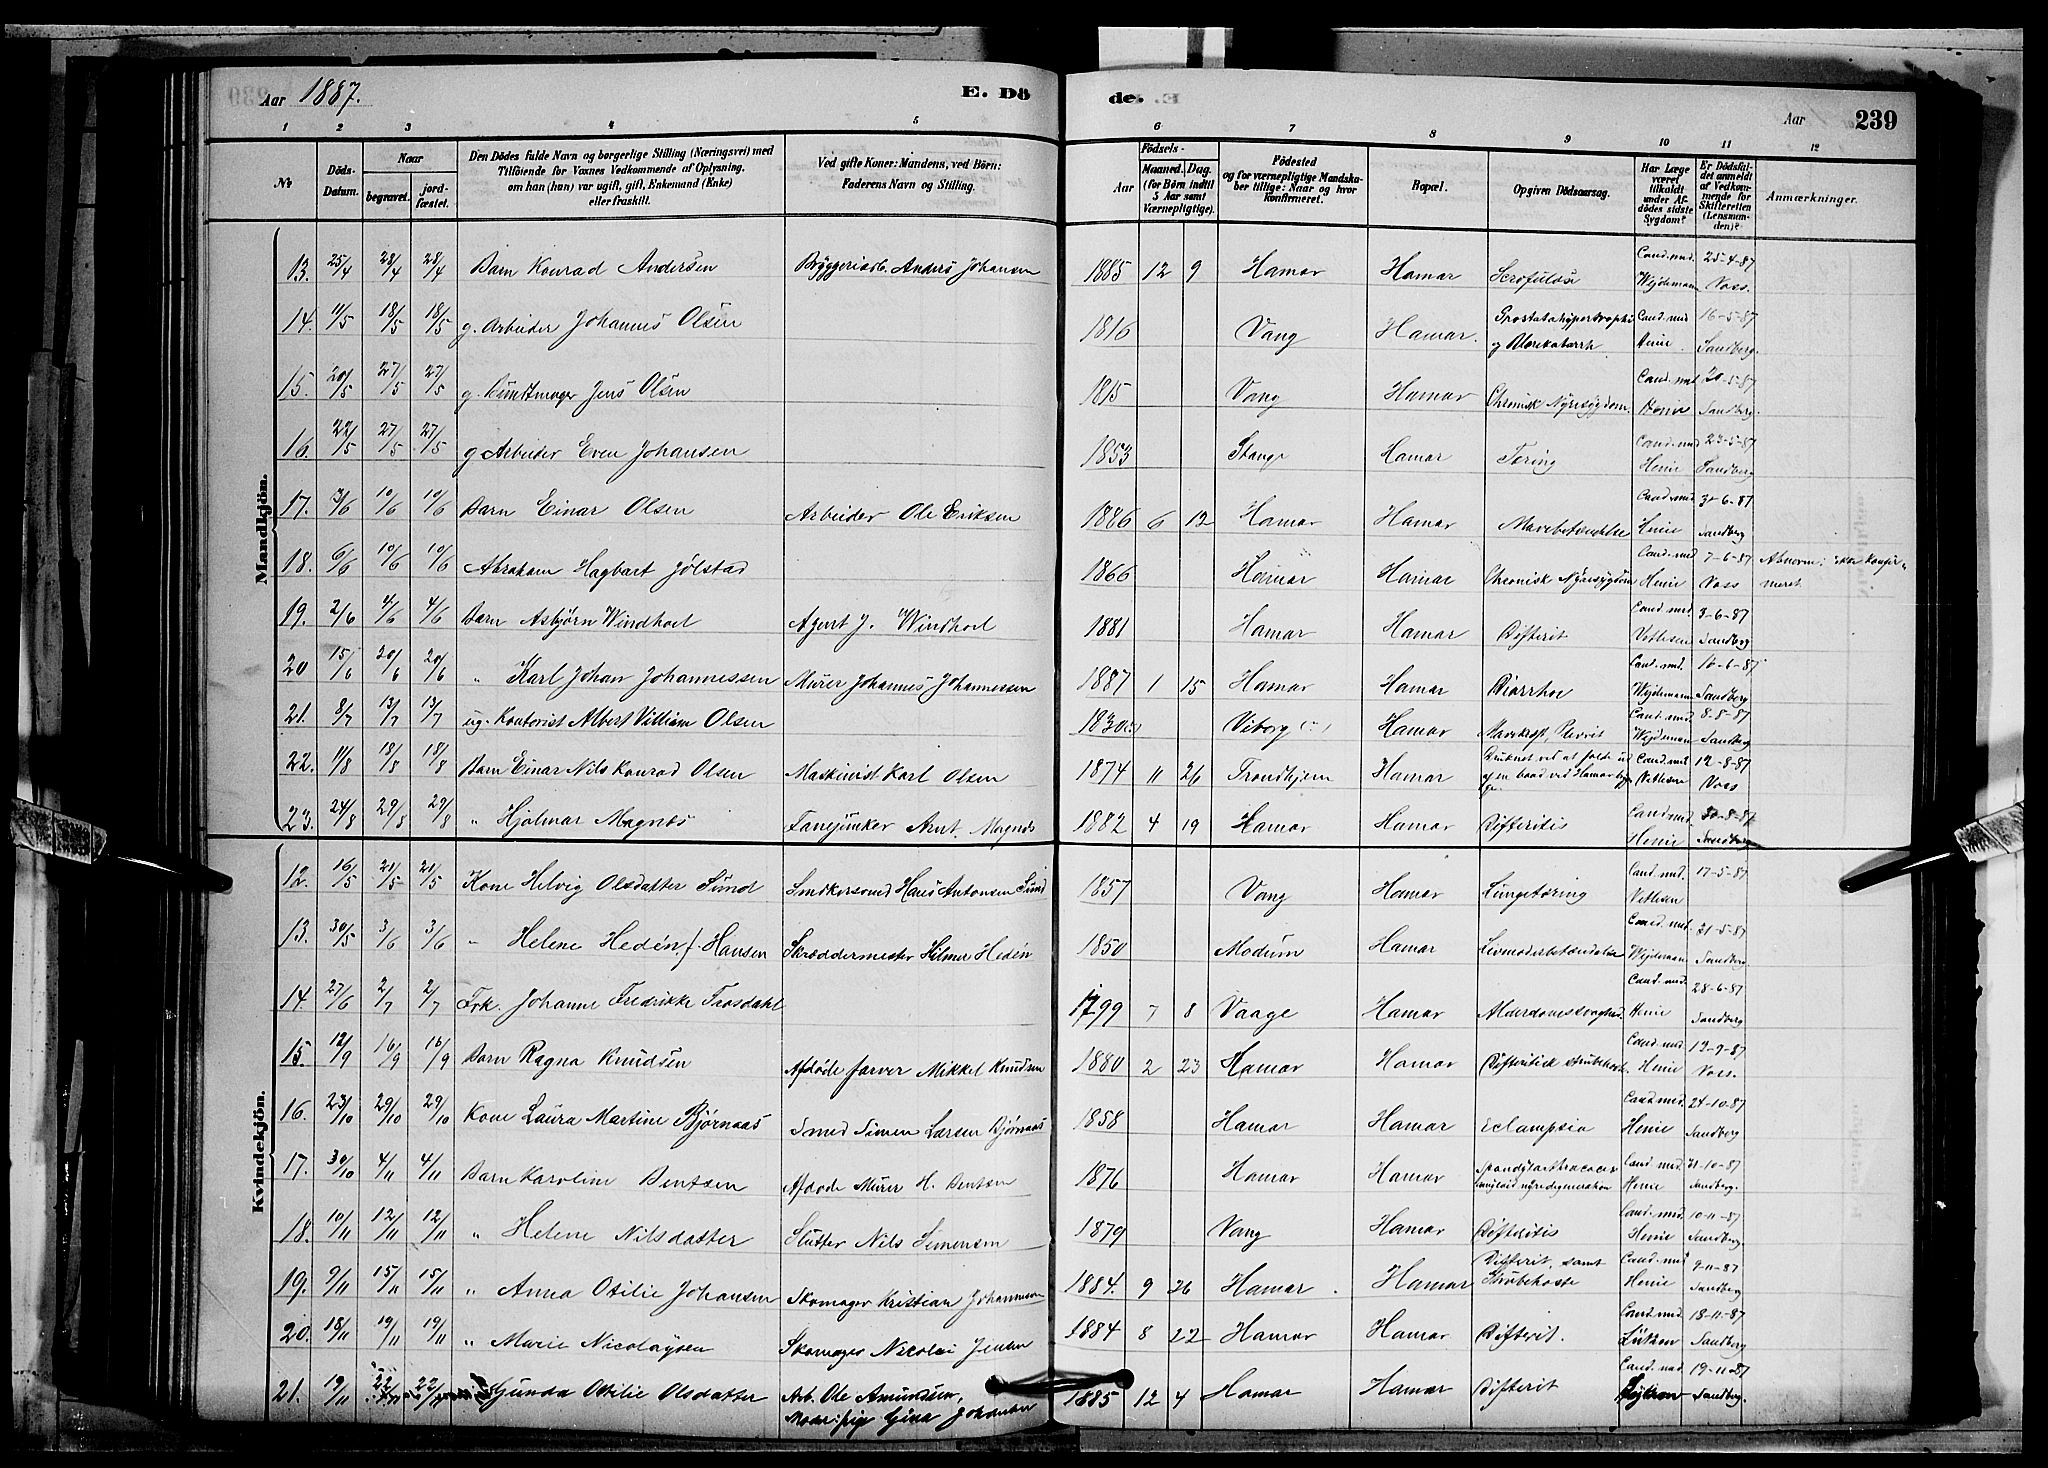 Aar 1887.
E. Dö
de.
Aar
239
1 2 3 4 5 6 7 8 9 10 11 12
№
Döds-Datum.
Naar
begravet.
jord-fæstet.
Den Dödes fulde Navn og borgerlige Stilling (Næringsvei) med
Tilföiende for Voxnes Vedkommende af Oplysning,
om han (hun) var ugift, gift, Enkemand (Enke)
eller fraskilt.
Ved gifte Koner: Mandens, ved Börn:
Faderens Navn og Stilling.
Födsels-
Aar
Maaned. Dag.
(for Börn indtil
5 Aar samt
Værnepligtige).
Födested
og for værnepligtige Mandska-
ber tillige: Naar og hvor
konfirmeret.
Bopæl.
Opgiven Dödsaarsag.
Har Læge
været
tilkaldt
under Af-
dödes sidste
Sygdom?
Er Dödsfal-
det anmeldt
af Vedkom-
mende for
Skifteretten
(Lensman-
den)?
Anmærkninger.
Mandkjön.
13. 25/4 28/4 28/4 Barn Konrad Andersen Bryggeriarb. Anders Johansen 1885 12 9 Hamar Hamar Scrofuløse Cand. med. Wejdemann 25-4-87 Voss.
14. 11/5 18/5 18/5 g. Arbeider Johannes Olsen 1816 Vang Hamar. Prostatahypertrophi og Blærekatarrh Cand. med Henie. 16-5-87 Sandberg.
15. 20/5 27/5 27/5 g. Buntmager Jens Olsen 1815 Vang Hamar Chronisk Nyresygdom. Cand. med Henie 20-5-87 Sandberg.
16. 22/5 27/5 27/5 g Arbeider Even Johansen 1853 Stange Hamar Tæring Cand. med Henie 23-5-87 Sandberg
17. 3/6 10/6 10/6 Barn Einar Olsen Arbeider Ole Eriksen 1886 6 12 Hamar Hamar Mavebetændelse Cand. med Henie 3-6-87 Sandberg
18. 6/6 10/6 10/6 Abraham Hagbart Jølstad 1866 Hamar Hamar Chronisk Nyresygdom Cand. med Henie 7-6-87 Voss Abnorm; ikke konfirmeret.
19. 2/6 4/6 4/6 Barn Asbjørn Windhoel Agent J. Windhoel 1881 Hamar Hamar Difterit Cand. med. Vetlesen 3-6-87 Sandberg
20 15/6 20/6 20/6 " Karl Johan Johannessen Murer Johannes Johannessen 1887 1 15 Hamar Hamar Diarrhoe Cand. med. Wejdemann 16-6-87 Sandberg
21. 8/7 13/7 13/7 ug. Kontorist Albert Villiam Olsen 1830 Viborg Hamar Cand. med. Wejdeman 8-8-87 Sandberg
22. 11/8 18/8 18/8 Barn Einar Nils Konrad Olsen Maskinist Karl Olsen 1874 11 26 Trondhjem Hamar Druknet ved at falde ud af en baad ved Hamar brygge. Cand. med Vetlesen 12-8-87 Voss
23. 24/8 29/8 29/8 " Hjalmar Magnæs Fanejunker Arnt. Magnæs 1882 4 19 Hamar Hamar Difteritis Cand. med. Henie 30-8-87 Sandberg
Kvindekjön.
12. 16/5 21/5 21/5 Kone Helvig Olsdatter Sund Snedkersvend Hans Antonsen Sund 1857 Vang Hamar Lungetæring Cand. med. Vetlesen 17-5-87
13. 30/5 3/6 3/6 " Helene Hedén f. Hansen Skræddermester Hilmer Hedén 1850 Modum Hamar Livmoderbetændelse Cand. med. Wejdeman 31-5-87 Sandberg.
14. 27/6 2/7 2/7 Frk. Johanne Fredrikke Frosdahl 1799 7 8 Vaage Hamar Alderdomssvaghed. Cand. med. Henie 28-6-87 Sandberg
15. 12/9 16/9 16/9 Barn Ragna Knudsen Afdøde farver Mikkel Knudsen 1880 2 23 Hamar Hamar Difteritisk strubehoste Cand. med. Henie 13-9-87 Voss.
16. 23/10 29/10 29/10 Kone Laura Martine Bjørnaas Smed Simen Larsen Bjørnaas 1858 Hamar Hamar Eclampsia Cand. med. Henie 24-10-87 Sandberg
17. 30/10 4/11 4/11 Barn Karoline Bentsen Afdøde Murer H. Bentsen 1876 Hamar Hamar amyloid nyredegeneration Cand. med. Henie 31-10-87 Sandberg.
18. 10/11 12/11 12/11 " Helene Nilsdatter Slutter Nils Semensen 1879 Vang Hamar Difteritis Cand. med Henie 10-11-87 Sandberg.
19. 9/11 15/11 15/11 " Anna Otilie Johansen Skomager Kristian Johannesen 1884. 9 26 Hamar Hamar Difterit, samt Strubehoste Cand. med Henie 9-11-87 Sandberg
20. 18/11 19/11 19/11 " Marie Nicolaysen Skomager Nicolai Jensen 1884 8 22 Hamar Hamar Difterit. Cand. med. Lütken 18-11-87 Sandberg
21. 19/11 22/11 22/11 Gunda Otilie Olsdatter Arb. Ole Amundsen, Moder: pige Gina Johansen 1885 12 4 Hamar Hamar Difterit Cand. med Lytken 19-11-87 Sandberg.